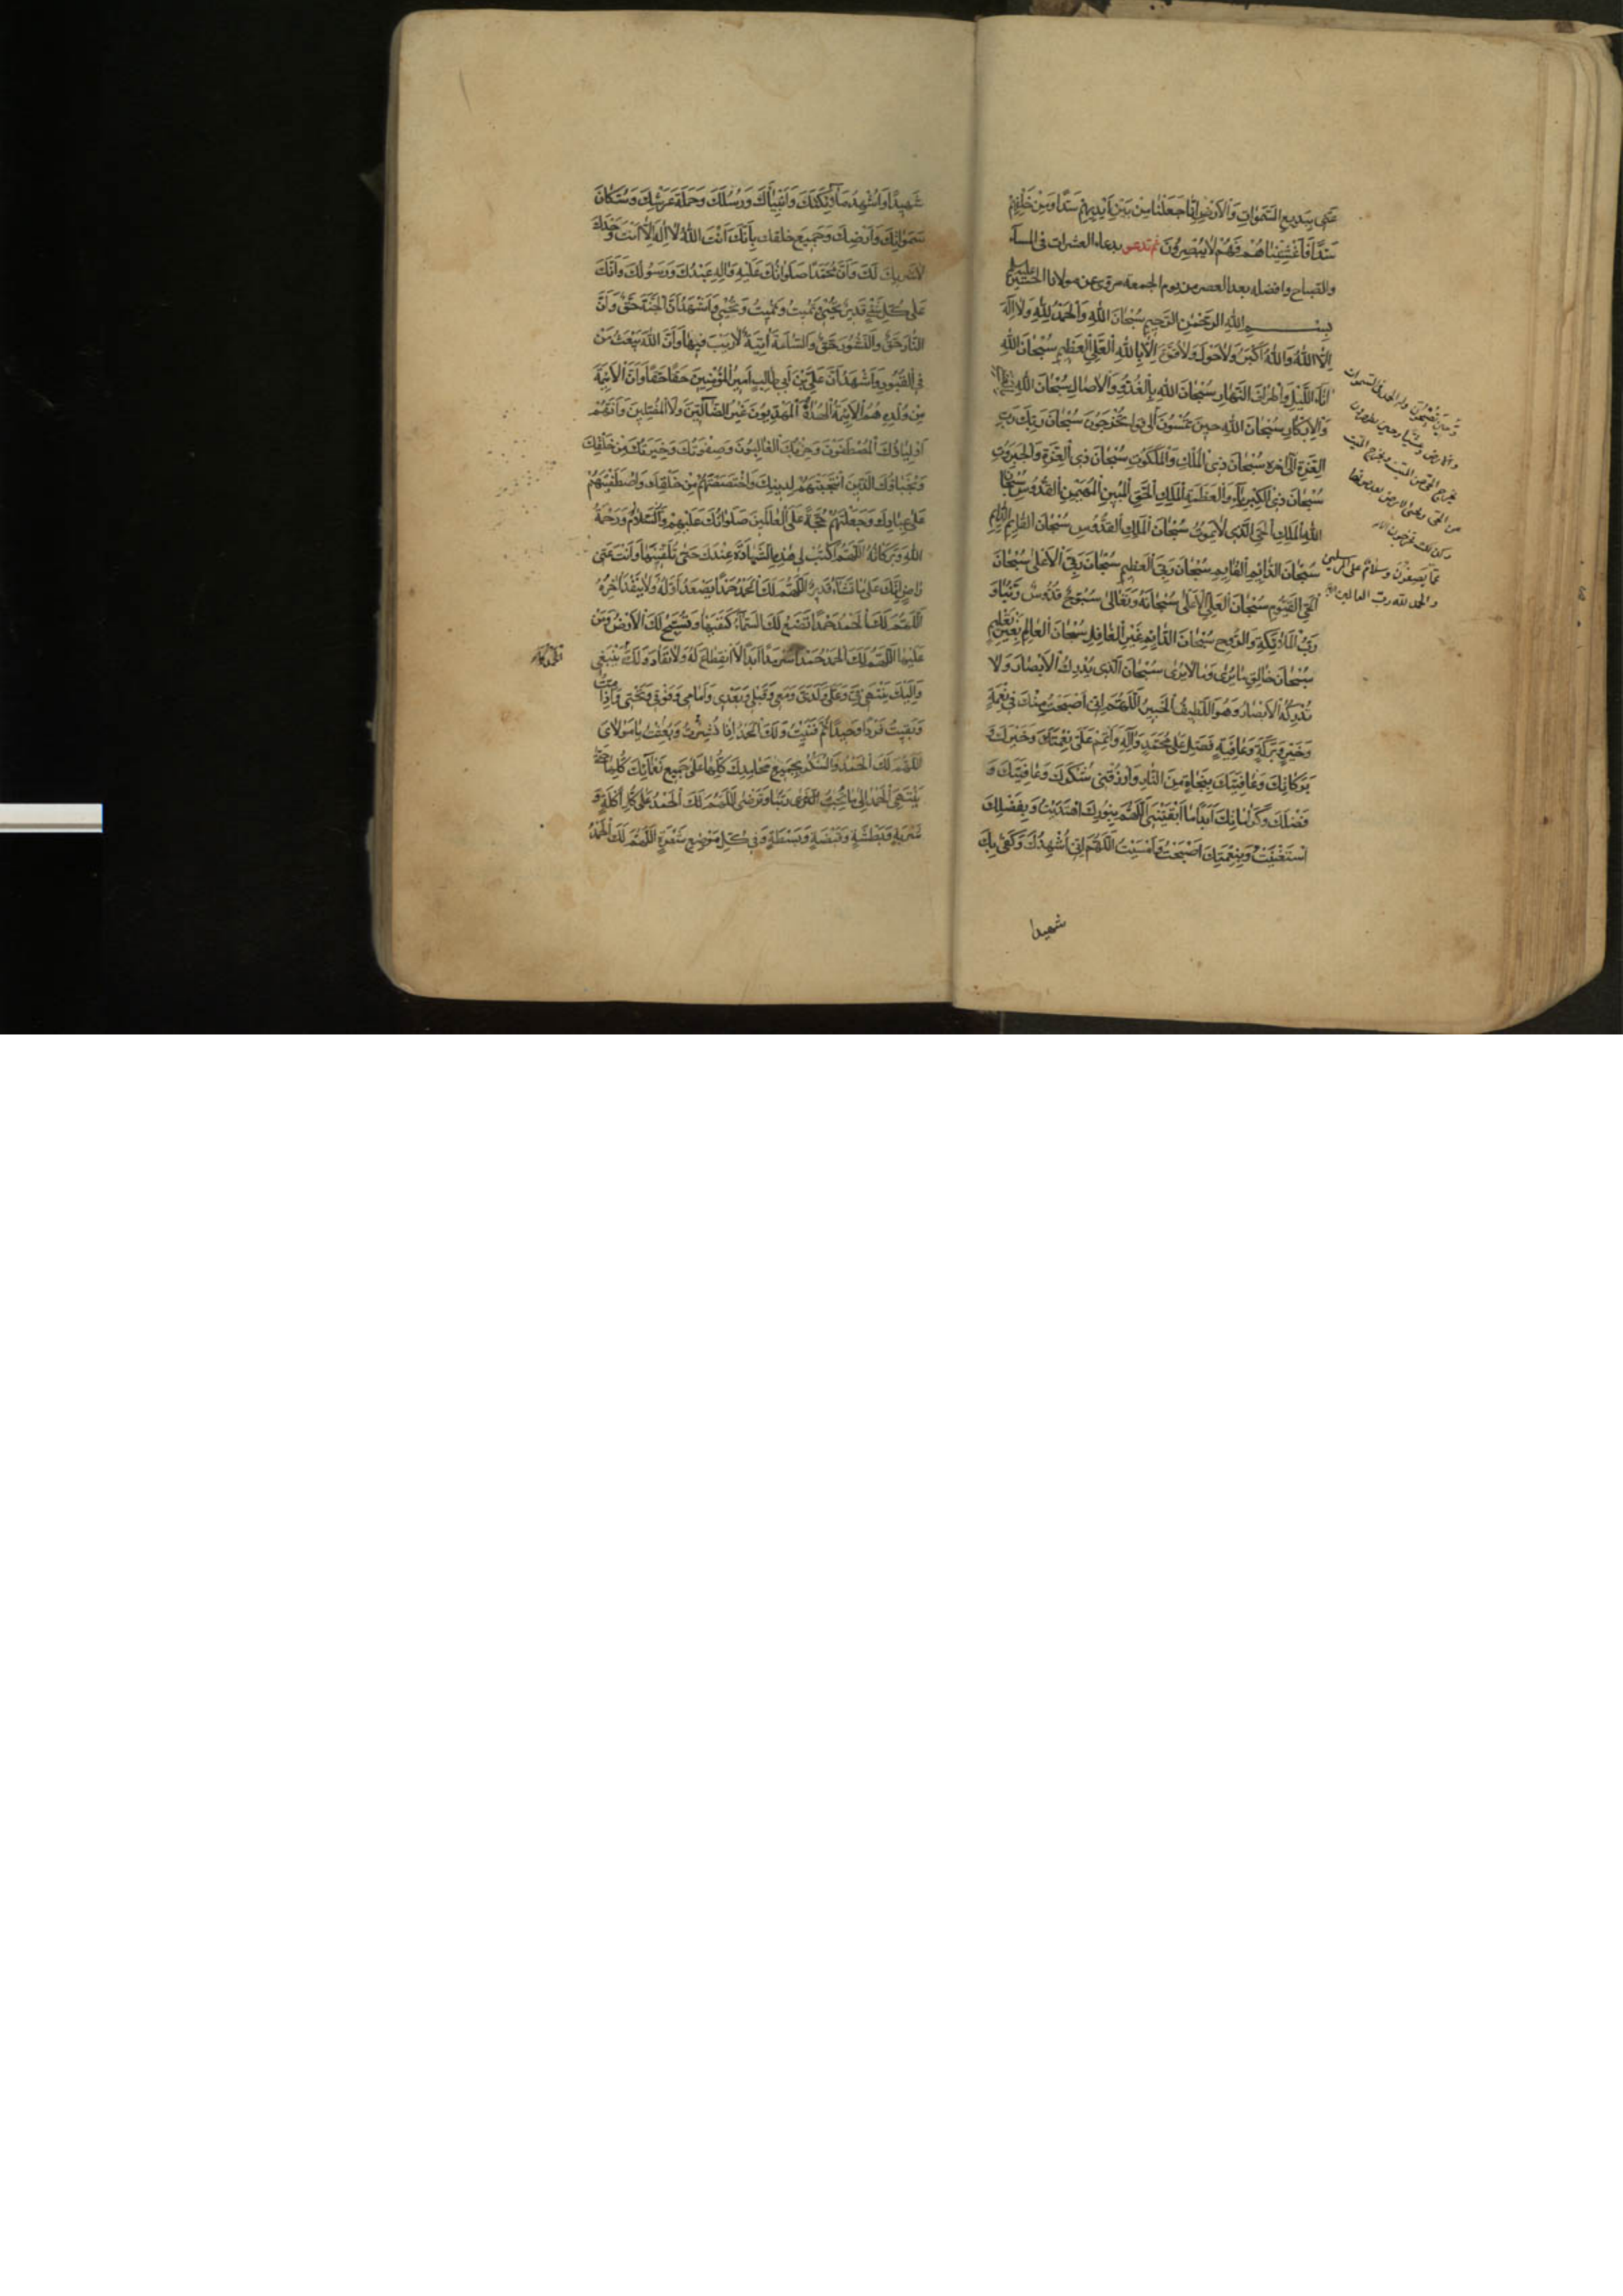 عنى ببديع السَّمٰوات والارض انّا جعلنا من بين ايديهم سدًّا ومن خلفهم
سدًّا فاغشيناهم فهم لا يبصرون ثم تدعو بدعاء العشرات فى المساء
والصباح وافضله بعد العصر من يوم الجمعة مروى عن مولانا الحسين عليه السلام
بسم الله الرحمن الرحيم سبحان الله والحمد لله ولا اله
الا الله والله اكبر ولا حول ولا قوة الا بالله العلى العظيم سبحان الله
اناء الليل واطراف النهار سبحان الله بالغدو والاصال سبحان الله بالعشى
والابكار سبحان الله حين تمسون الى قوله تخرجون سبحان ربك رب
العزة الى اخره سبحان ذى الملك والملكوت سبحان ذى العزة والجبروت
سبحان ذى الكبرياء والعظمة الملك الحق المبين المهيمن القدوس سبحان
الله الملك الحى الذى لا يموت سبحان الملك القدوس سبحان القائم الدائم
سبحان الدائم القائم سبحان ربى العظيم سبحان ربى الاعلى سبحان
الحى القيوم سبحان العلى الاعلى سبحانه وتعالى سبوح قدوس ربنا و
رب الملائكة والروح سبحان الدائم غير الغافل سبحان العالم بغير تعليم
سبحان خالق ما يرى وما لا يرى سبحان الذى يدرك الابصار ولا
تدركه الابصار وهو اللطيف الخبير اللهم انى اصبحت منك فى نعمة
وخير وبركة وعافية فصل على محمد وآله واتمم على نعمتك وخيرك و
بركاتك وعافيتك بنجاة من النار وارزقنى شكرك وعافيتك و
فضلك وكراماتك ابدا ما ابقيتنى اللهم بنورك اهتديت وبفضلك
استغنيت وبنعمتك اصبحت وامسيت اللهم انى اشهدك وكفى بك
شهيدا
وحين تصبحون وله الحمد فى السموات
والارض وعشيا وحين تظهرون
يخرج الحى من الميت ويخرج الميت
من الحى ويحيى الارض بعد موتها
وكذلك تخرجون
عما يصفون وسلام على المرسلين
والحمد لله رب العالمين
شهيدا واشهد ملائكتك وانبياءك ورسلك وحملة عرشك وسكان
سمواتك وارضك وجميع خلقك بانك انت الله لا اله الا انت وحدك
لا شريك لك وان محمدا صلواتك عليه وآله عبدك ورسولك وانك
على كل شئ قدير تحيى وتميت وتميت وتحيى واشهد ان الجنة حق وان
النار حق والنشور حق والساعة اتية لا ريب فيها وان الله يبعث من
فى القبور واشهد ان على بن ابى طالب امير المؤمنين حقا حقا وان الائمة
من ولده هم الائمة الهداة المهديون غير الضالين ولا المضلين وانهم
اولياؤك المصطفون وحزبك الغالبون وصفوتك وخيرتك من خلقك
ونجباؤك الذين انتجبتهم لدينك واختصصتهم من خلقك واصطفيتهم
على عبادك وجعلتهم حجة على العالمين صلواتك عليهم والسلام ورحمة
الله وبركاته اللهم اكتب لى هذه الشهادة عندك حتى تلقنيها وانت عنى
راض انك على ما تشاء قدير اللهم لك الحمد حمدا يصعد اوله ولا ينفد اخره
اللهم لك الحمد حمدا تضع لك السماء كنفيها وتسبح لك الارض ومن
عليها اللهم لك الحمد حمدا سرمدا ابدا لا انقطاع له ولا نفاد ولك ينبغى
واليك ينتهى فى وعلى ولدى ومعى وقبلى وبعدى وامامى وفوقى وتحتى واذا مت
وبقيت فردا وحيدا ثم فنيت ولك الحمد اذا نشرت وبعثت يا مولاى
اللهم لك الحمد والشكر بجميع محامدك كلها على جميع نعمائك كلها حتى
ينتهى الحمد الى ما تحب ربنا وترضى اللهم لك الحمد على كل اكلة و
شربة وبطشة وقبضة وبسطة وفى كل موضع شعرة اللهم لك الحمد